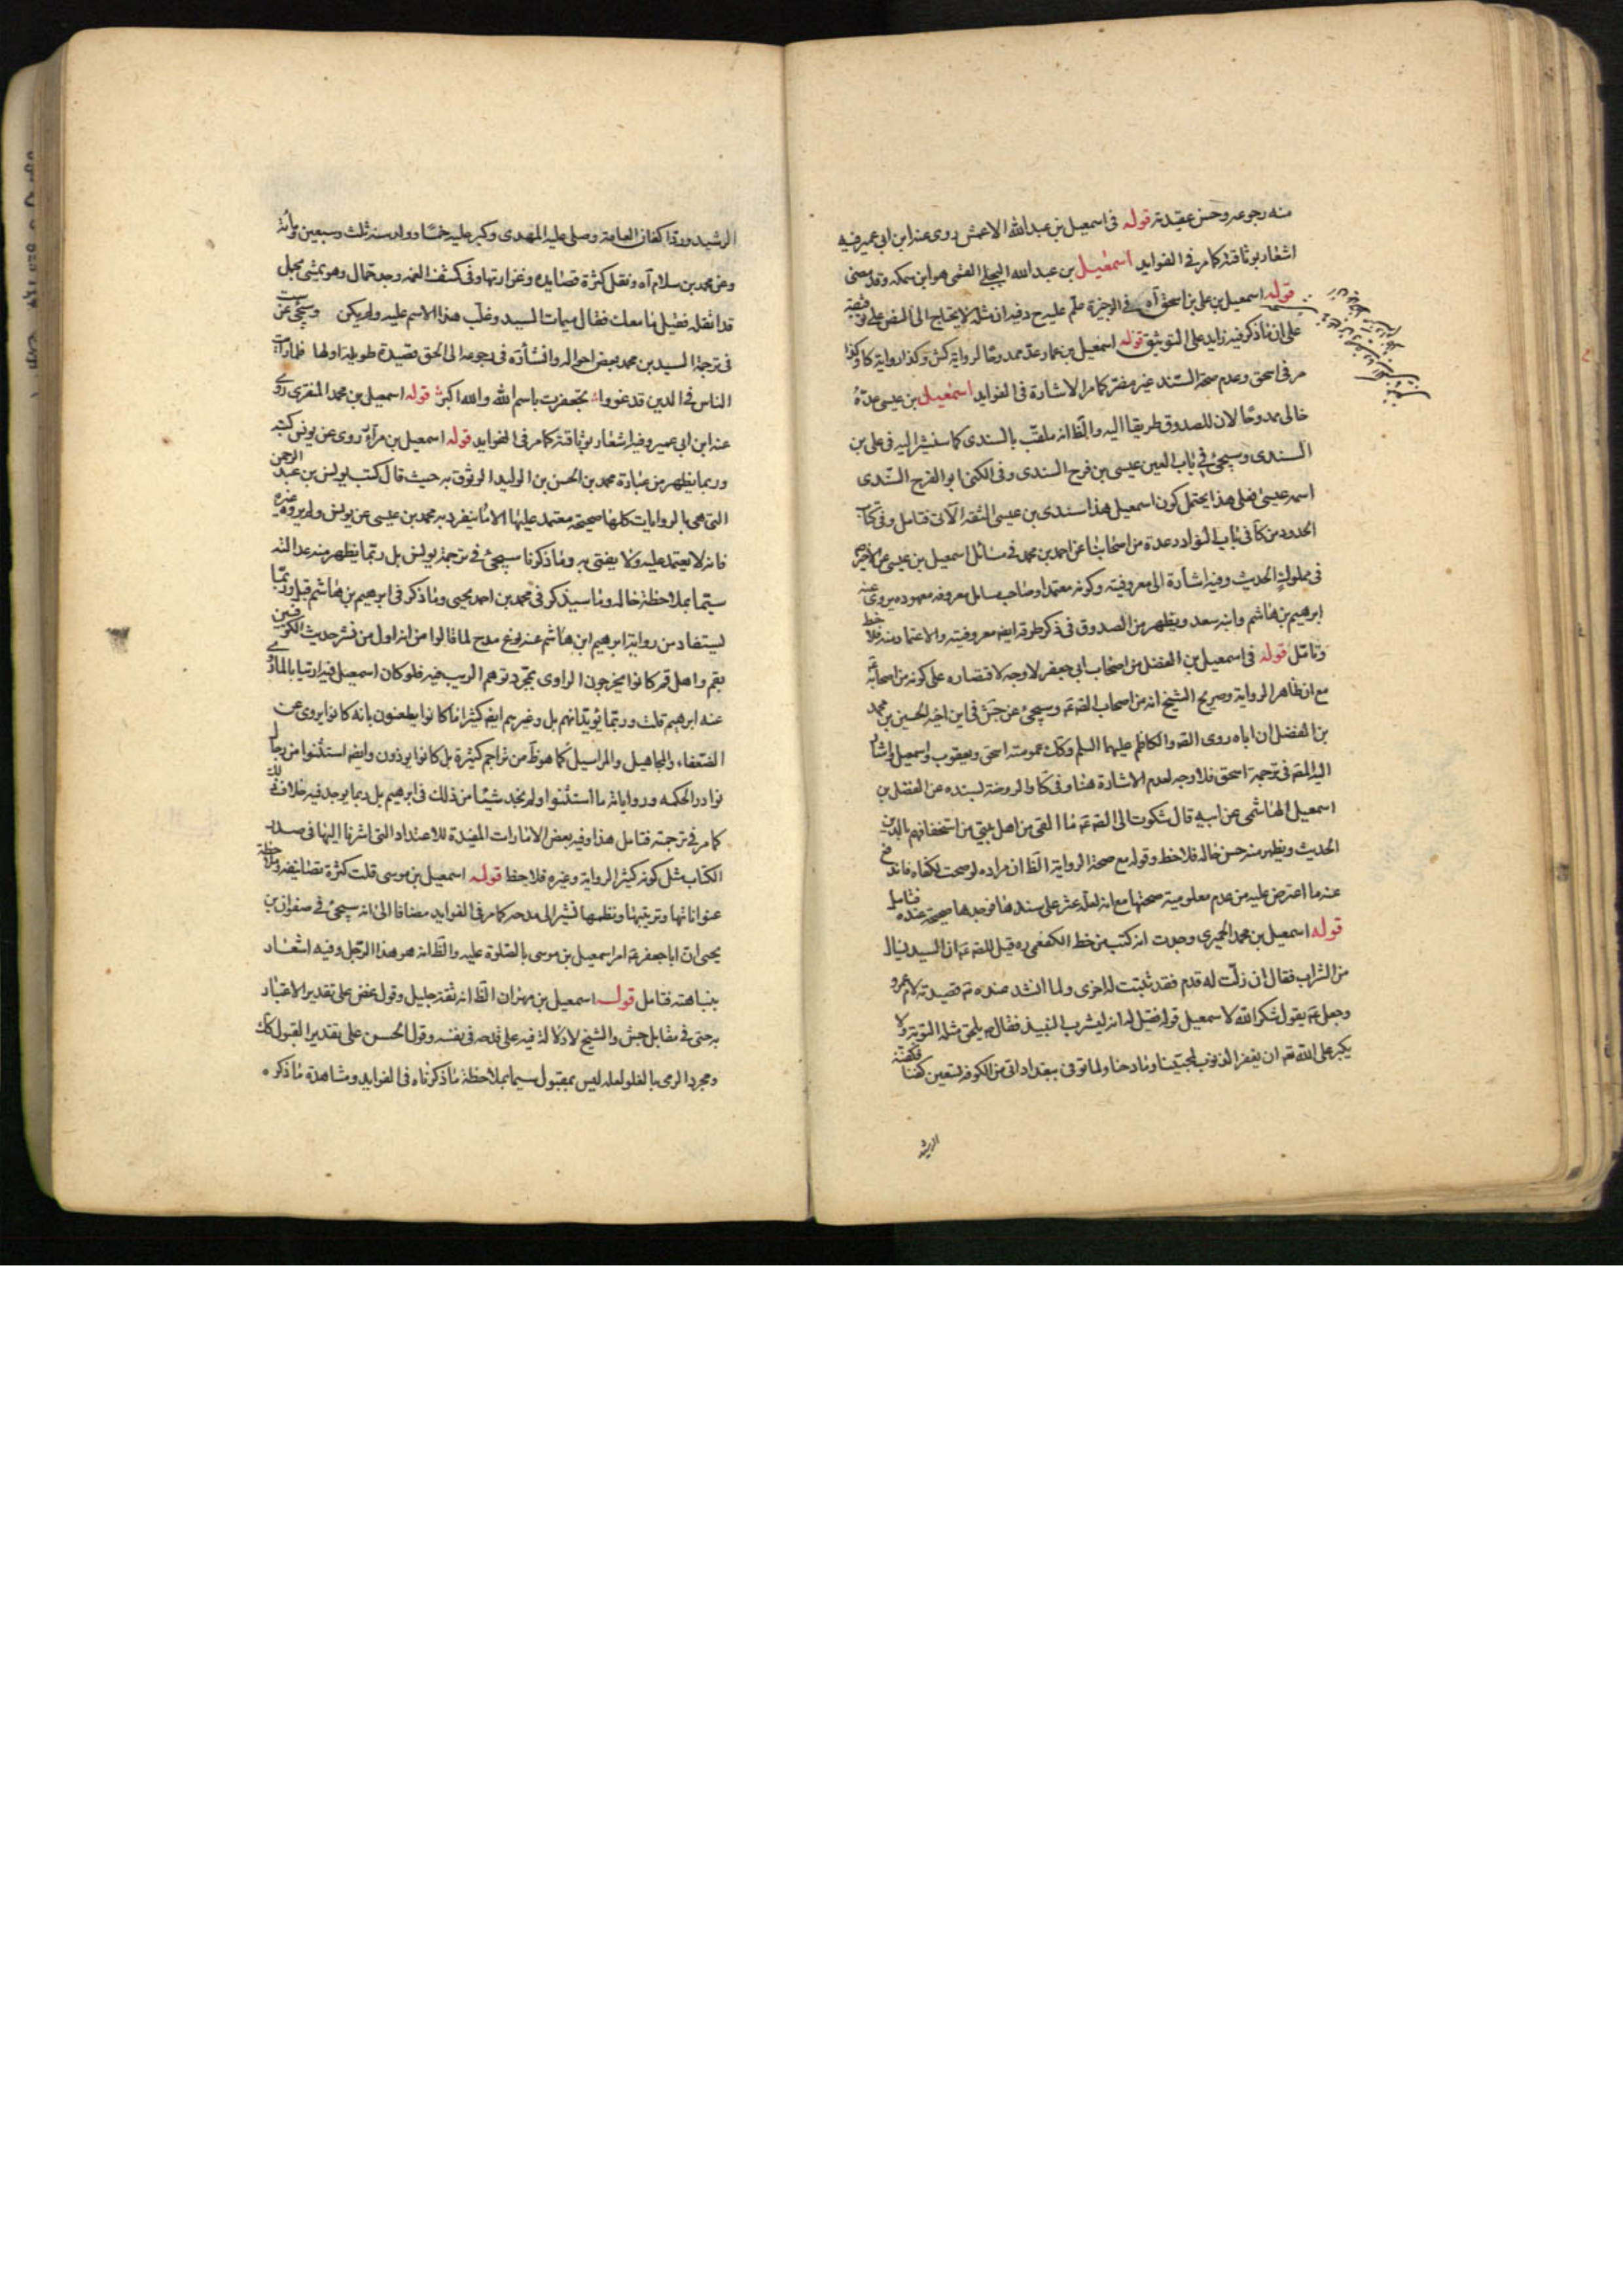 منه رجوعه وحسن عقيدته قوله في اسمعيل بن عبد الله الاعمش روى عنه ابن ابي عمير وفيه
اشعار بوثاقته كما مر في الفوايد اسمعيل بن عبد الله البجلي القمي هو ابن سمكه وقد مضى
قوله اسمعيل بن علي بن اسحق آه في الوجيزة علم عليه ح وفيه ان مثله لا يحتاج الى النص على توثيقه
على ان ما ذكر فيه زايد على التوثيق قوله اسمعيل بن عمار عد ممدوحا لرواية كش وكذا رواية كا وكذا
مر في اسحق وعدم صحة السند غير مضر كما مر الاشارة في الفوايد اسمعيل بن عيسى عده
خالي ممدوحا لان للصدوق طريقا اليه والظ انه ملقب بالسندى كما سنشير اليه في علي بن
السندى وسيجئ في باب العين عيسى بن فرج السندى وفي الكنى ابو الفرج السندى
اسمه عيسى فعلى هذا يحتمل كون اسمعيل هذا سندى بن عيسى الثقة الآتي فتامل وفي كتاب
الحدود من كا في باب النوادر عدة من اصحابنا عن احمد بن محمد في مسائل اسمعيل بن عيسى عن الاخير ع
في مملوك الحديث وفيه اشارة الى معروفيته وكونه معتمدا وصاحب مسايل معروفه معهوده يروى عنه
ابرهيم بن هاشم وابنه سعد ويظهر من الصدوق في ذكر طرقه ايضا معروفيته والاعتماد منه فلاحظ
وتامل قوله في اسمعيل بن الفضل من اصحاب ابي جعفر لا وجه لاقتصاره على كونه من اصحابه
مع ان ظاهر الرواية وصريح الشيخ انه من اصحاب الصادق ع وسيجئ عن جش في ابن اخيه الحسين بن محمد
بن الفضل ان اباه روى الصه والكاظم عليهما السلم وكك عمومته اسحق ويعقوب واسمعيل واشار
اليه المصه في ترجمة اسحق فلا وجه لعدم الاشارة هنا وفي كا والروضة بسنده عن الفضل بن
اسمعيل الهاشمي عن ابيه قال شكوت الى الصه ع ما القى من اهل بيتي من استخفافهم بالدين
الحديث ويظهر منه حسن حاله فلاحظ وقوله مع صحة الرواية الظ ان مراده لو صحت لكفاه فاندفع
عنه ما اعترض عليه من عدم معلومية صحتها مع انه لعله عثر على سندها فوجدها صحيحة عنده فتامل
قوله اسمعيل بن محمد الحميرى وجدت انه كتب من خط الكفعمي ره قيل للصه ع ان السيد لينال
من الشراب فقال ان زلت له قدم فقد ثبتت له اخرى ولما انشد عنده ع قصيدته لام عمرو
وجعل ع يقول شكر الله لاسمعيل قوله فقيل له انه ليشرب النبيذ فقال ع يلحق مثله التوبة ولا
يكبر على الله تعه ان يغفر الذنوب لمحبينا ومادحنا ولما توفي ببغداد اتى من الكوفة بتسعين كفنا فكفنه
الرشيد
الرشيد ورد اكفان العامة وصلى عليه المهدى وكبر عليه خمسا ووارسنه ثلث وسبعين ومائة
وعن محمد بن سلام آه ونقل كثرة قصايده وغزارتها وفي كشف الغمه وجد حمال وهو يمشي بحمل
قد اثقله فقيل ما معك فقال ميمات السيد وغلب هذا الاسم عليه ولم يكن وسيجئ عن ست
في ترجمة السيد بن محمد بعض احواله وانشاده في رجوعه الى الحق قصيدة طويلة اولها فلما رايت
الناس في الدين قد غووا تجعفرت باسم الله والله اكبر قوله اسمعيل بن محمد المنقرى روى
عنه ابن ابي عمير وفيه اشعار بوثاقته كما مر في الفوايد قوله اسمعيل بن مرار روى عن يونس كتبه
وربما يظهر من عبارة محمد بن الحسن بن الوليد الوثوق به حيث قال كتب يونس بن عبد الرحمن
التي هي بالروايات كلها صحيحة معتمد عليها الا ما ينفرد به محمد بن عيسى عن يونس ولم يروه غيره
فانه لا يعتمد عليه ولا يفتى به وما ذكرنا سيجئ في ترجمة يونس بل ربما يظهر منه عدالته
سيما بملاحظة حاله وما سيذكر في محمد بن احمد يحيى وما ذكر في ابرهيم بن هاشم قبل وربما
يستفاد من رواية ابرهيم ابن هاشم عنه نوع مدح لما قالوا من انه اول من نشر حديث الكوفيين
بقم واهل قم كانوا يخرجون الراوى بمجرد توهم الريب فيه فلو كان اسمعيل فيه ارتياب لما روى
عنه ابرهيم قلت وربما يؤيد انهم بل وغيرهم ايضا كثيرا ما كانوا يطعنون بانه كانوا يروى عن
الضعفاء والمجاهيل والمراسيل كما هو ظ من تراجم كثيرة بل كانوا يوذون وايضا استثنوا من رجال
نوادر الحكمه ورواياته ما استثنوا ولم نجد شيئا من ذلك في ابرهيم بل ربما يوجد فيه خلاف ذلك
كما مر في ترجمته فتامل هذا وفيه بعض الامارات المفيدة للاعتداد التي اشرنا اليها في صدر
الكتاب مثل كونه كثير الرواية وغيره فلاحظ قوله اسمعيل بن موسى قلت كثرة تصانيفه وملاحظة
عنواناتها وترتيبها ونظمها تشير الى مدحه كما مر في الفوايد مضافا الى انه سيجئ في صفوان بن
يحيى ان ابا جعفر ع امر اسمعيل بن موسى بالصلوة عليه والظ انه هو هذا الرجل وفيه اشعار
بنباهته فتامل قوله اسمعيل بن مهران الظ انه ثقة جليل وقول غض على تقدير الاعتبار
به حتى في مقابل جش والشيخ لا دلالة فيه على قدحه في نفسه وقول الحسن على تقدير القبول كك
ومجرد الرمي بالغلو لعله ليس بمقبول سيما بملاحظة ما ذكرناه في الفوايد ومشاهدة ما ذكره